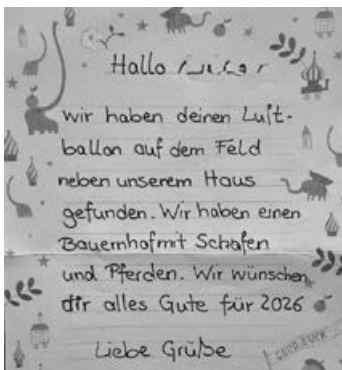 Hallo
wir haben deinen Luft-
ballon auf dem Feld
neben unserem Haus
gefunden. Wir haben einen
Bauernhof mit Schafen
und Pferden. Wir wünschen
dir alles Gute für 2026
Liebe Grüße
GOOD LUCK